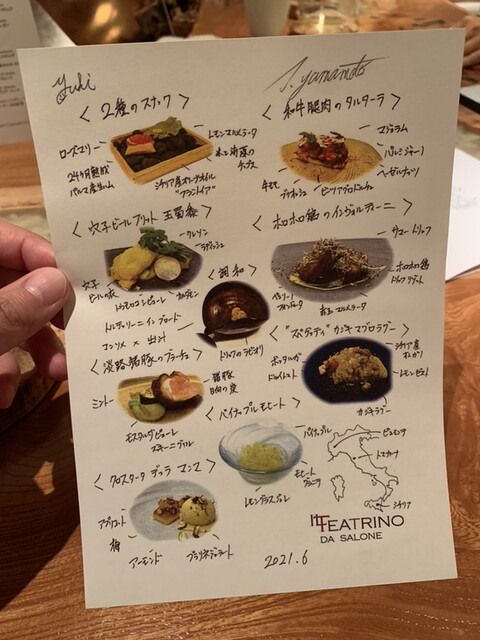 Yuki
J. yamamoto
< 2種のスナック >
ローズマリー
レモンマルメラータ
24ヶ月熟成
パルマ産生ハム
シチリア産オリーブオイル
米と海藻の
チップス
< 和牛腿肉のタルターラ >
マジョラム
パルミジャーノ
ヘーゼルナッツ
牛モモ
ブリオッシュ
< 穴子ビールフリット 玉蜀黍 >
クレソン
ラディッシュ
穴子
ビールの衣
トウモロコシピューレ
カルダモン
< ホロホロ鶏のインヴォルティーニ >
サマートリュフ
ホロホロ鶏
ペコリーノ
フォンドゥータ
< 調和 >
トルテッリーニ イン ブロード
コンソメ × 出汁
トリュフのラビオリ
< 淡路猪豚のブラーチェ >
猪豚
ミント
モスタルダピューレ
ズッキーニグリル
< "スパゲッティ" カジキマグロラグー >
ボッタルガ
ドライトマト
レモンゼスト
カジキラグー
< パイナップルモヒート >
パイナップル
モヒート
グラニータ
レモングラスジュレ
< クロスタータ デッラ ナンナ >
アプリコット
梅
アーモンド
プラリネジェラート
ピエモンテ
トスカーナ
シチリア
IL TEATRINO
DA SALONE
2021.6